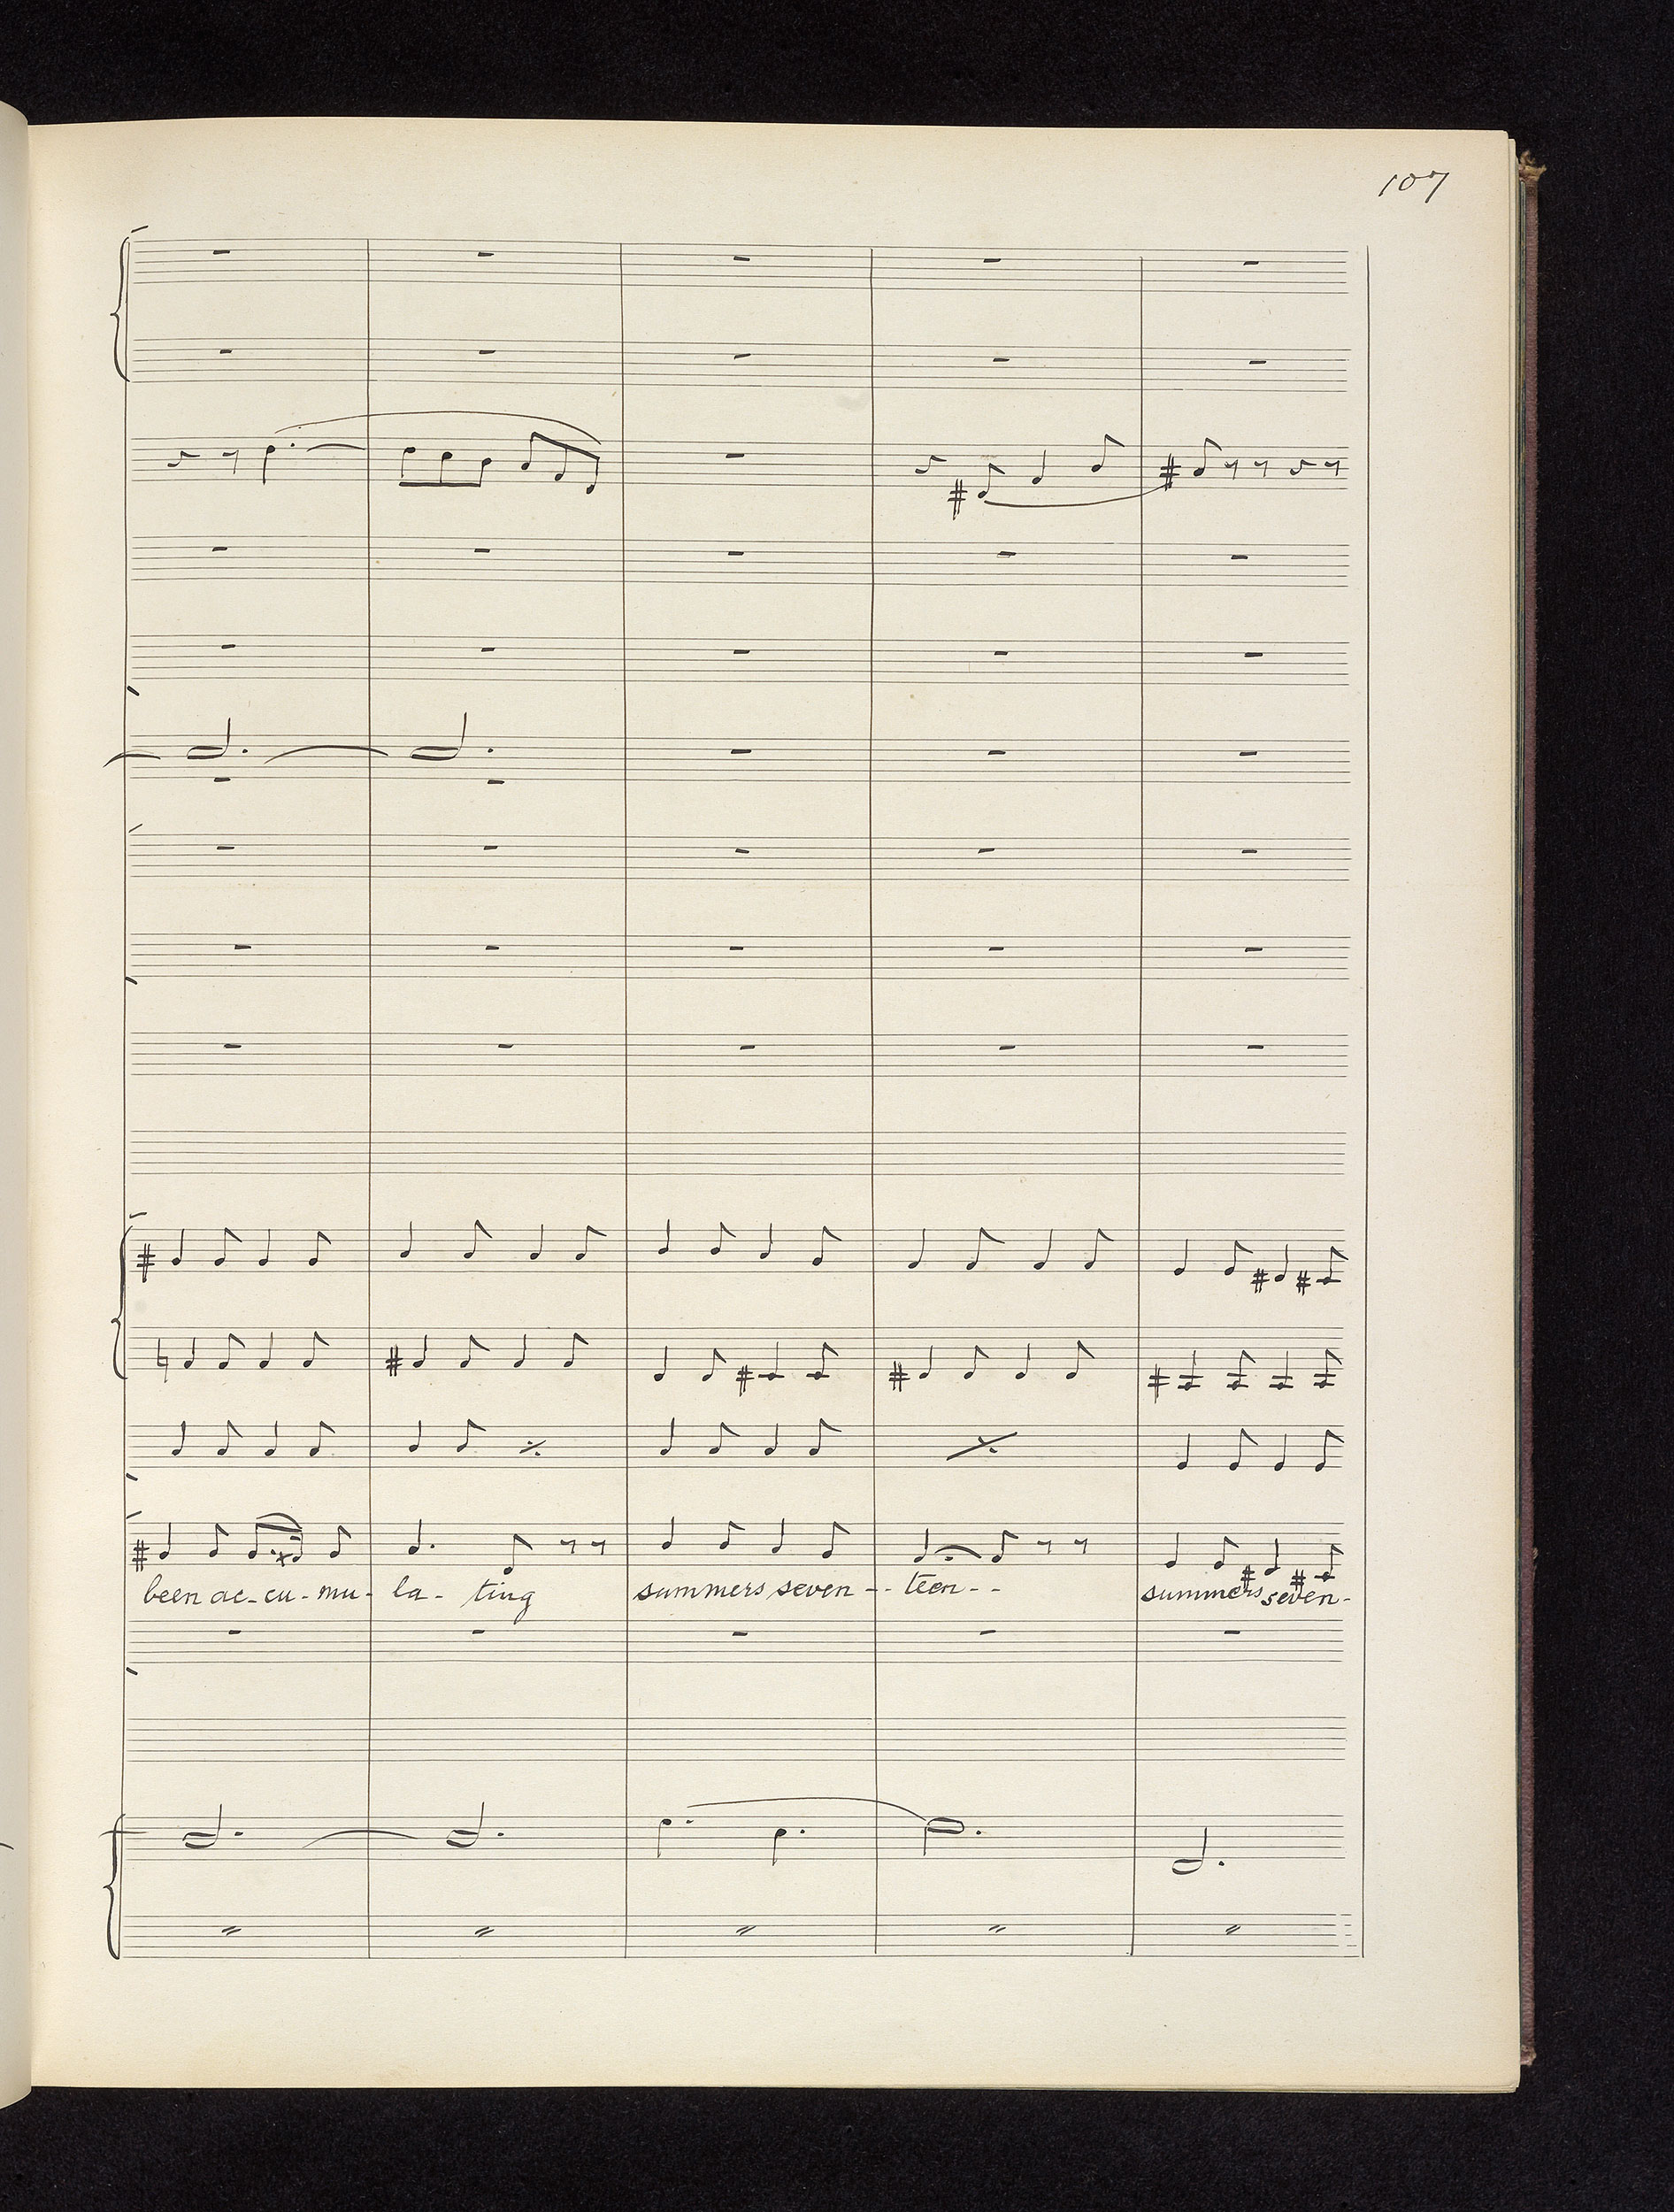 107
been ac-cu-mu-la-ting summers seven--teen-- summers seven-